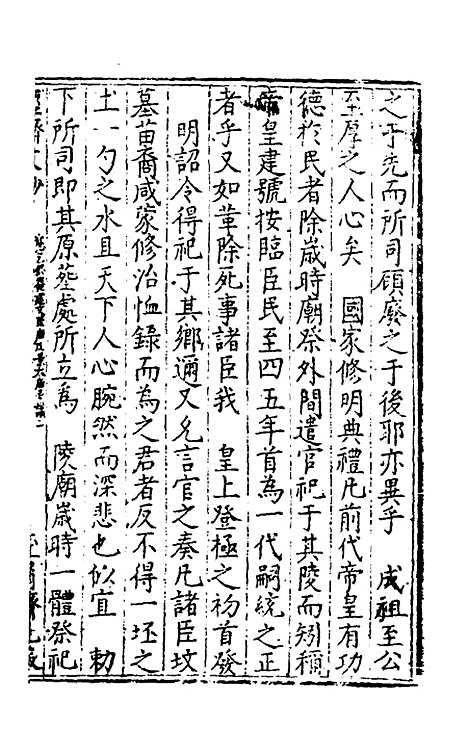 之于先而所司顧廢之于後耶亦異乎　成祖至公
至厚之人心矣　國家修明典禮凡前代帝皇有功
德於民者除歲時廟祭外間遣官祀于其陵而矧稱
帝皇建號按臨臣民至四五年首為一代嗣統之正
者乎又如革除死事諸臣我　皇上登極之初首發
明詔令得祀于其鄉邇又允言官之奏凡諸臣墳
墓苗裔咸蒙修治恤錄而為之君者反不得一坯之
土一勺之水且天下人心腕然而深悲也似宜　勅
下所司即其原塟處所立為　陵廟歲時一體祭祀